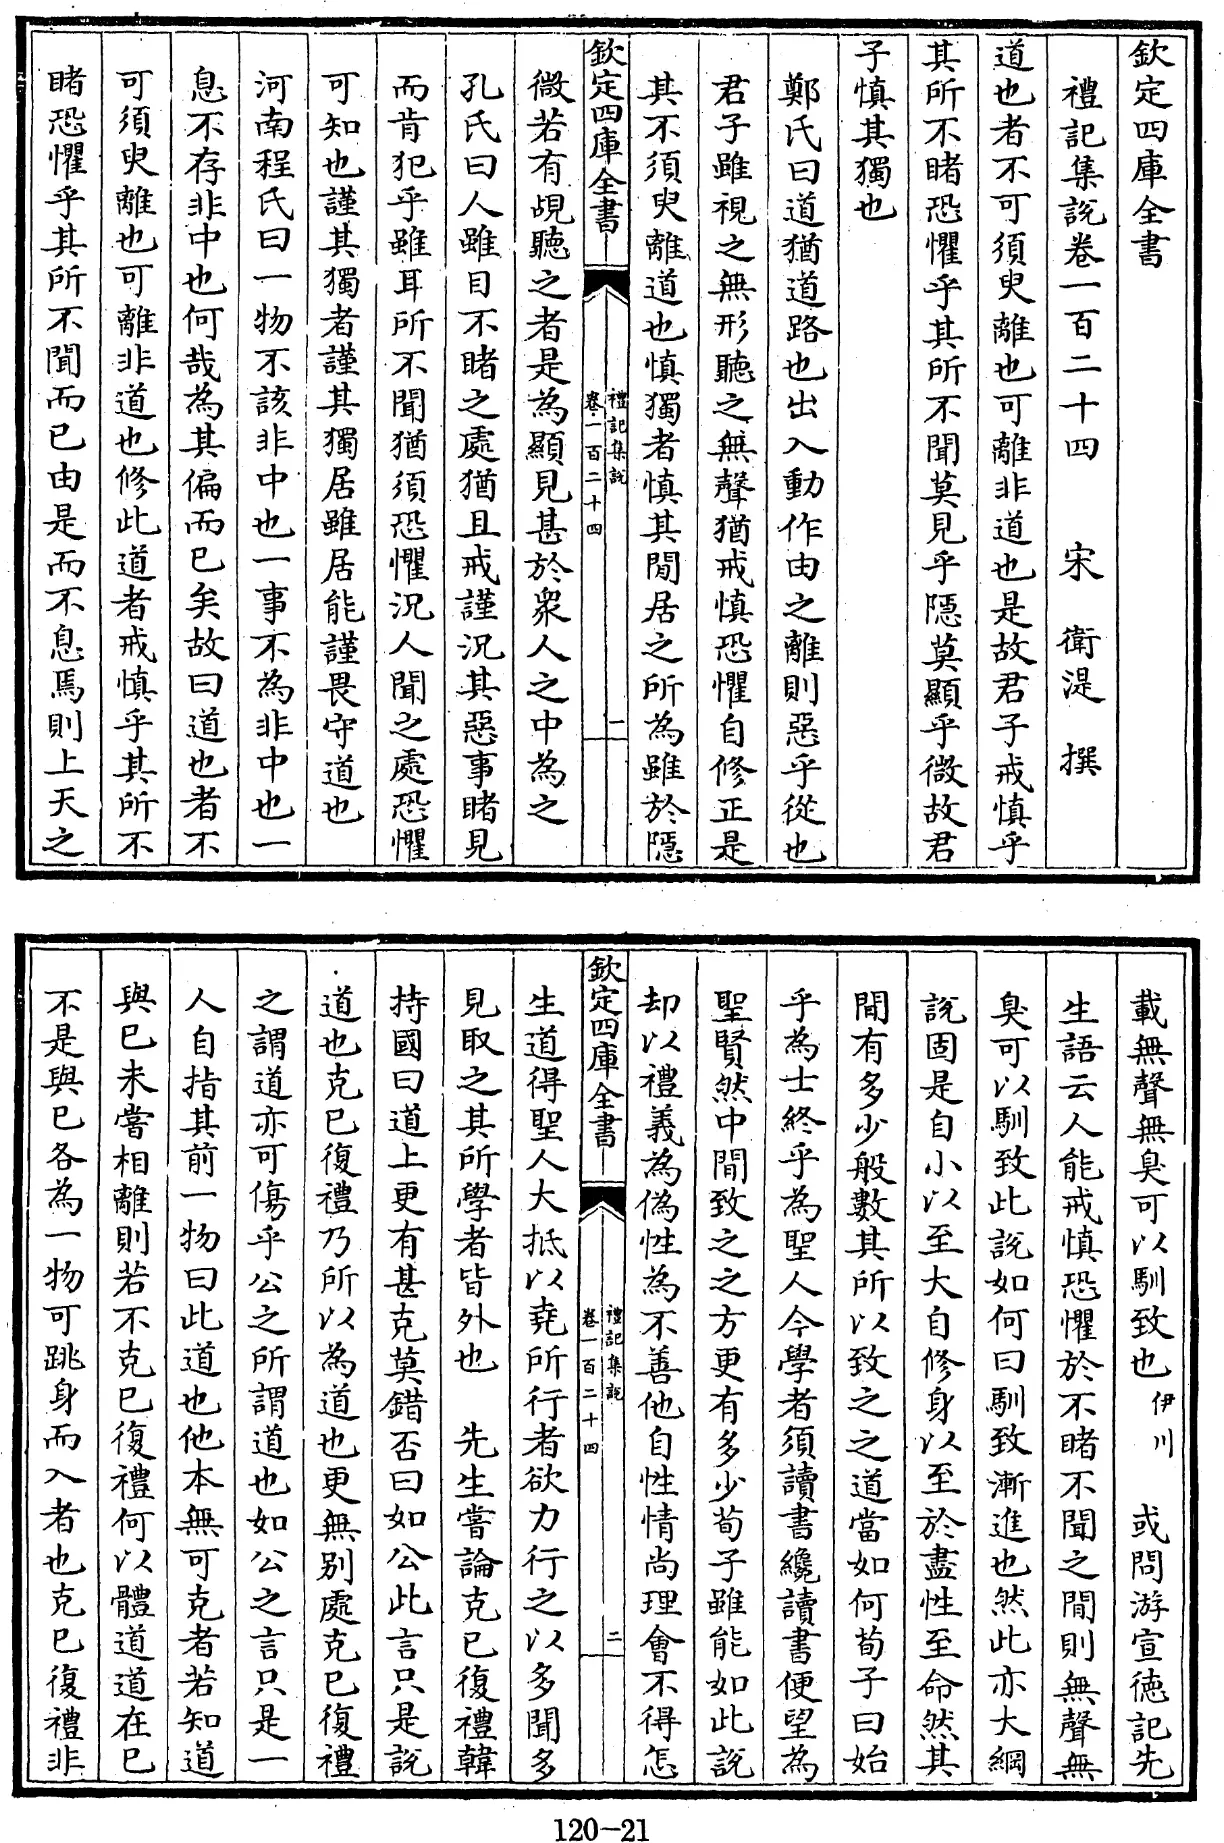 欽定四庫全書
禮記集說卷一百二十四　宋　衛湜　撰
道也者不可須臾離也可離非道也是故君子戒慎乎
其所不睹恐懼乎其所不聞莫見乎隱莫顯乎微故君
子慎其獨也
鄭氏曰道猶道路也出入動作由之離則惡乎從也
君子雖視之無形聽之無聲猶戒慎恐懼自修正是
其不須臾離道也慎獨者慎其閒居之所為雖於隱
欽定四庫全書
禮記集說
卷一百二十四
一
微若有覘聽之者是為顯見甚於衆人之中為之
孔氏曰人雖目不睹之處猶且戒謹況其惡事睹見
而肯犯乎雖耳所不聞猶須恐懼況人聞之處恐懼
可知也謹其獨者謹其獨居雖居能謹畏守道也
河南程氏曰一物不該非中也一事不為非中也一
息不存非中也何哉為其偏而已矣故曰道也者不
可須臾離也可離非道也修此道者戒慎乎其所不
睹恐懼乎其所不聞而已由是而不息焉則上天之
載無聲無臭可以馴致也伊川　或問游宣德記先
生語云人能戒慎恐懼於不睹不聞之間則無聲無
臭可以馴致此說如何曰馴致漸進也然此亦大綱
說固是自小以至大自修身以至於盡性至命然其
間有多少般數其所以致之之道當如何荀子曰始
乎為士終乎為聖人今學者須讀書纔讀書便望為
聖賢然中間致之之方更有多少荀子雖能如此說
却以禮義為偽性為不善他自性情尚理會不得怎
欽定四庫全書
禮記集說
卷一百二十四
二
生道得聖人大抵以堯所行者欲力行之以多聞多
見取之其所學者皆外也　先生嘗論克已復禮韓
持國曰道上更有甚克莫錯否曰如公此言只是說
道也克已復禮乃所以為道也更無别處克已復禮
之謂道亦可傷乎公之所謂道也如公之言只是一
人自指其前一物曰此道也他本無可克者若知道
與已未嘗相離則若不克已復禮何以體道道在已
不是與已各為一物可跳身而入者也克已復禮非
120-21